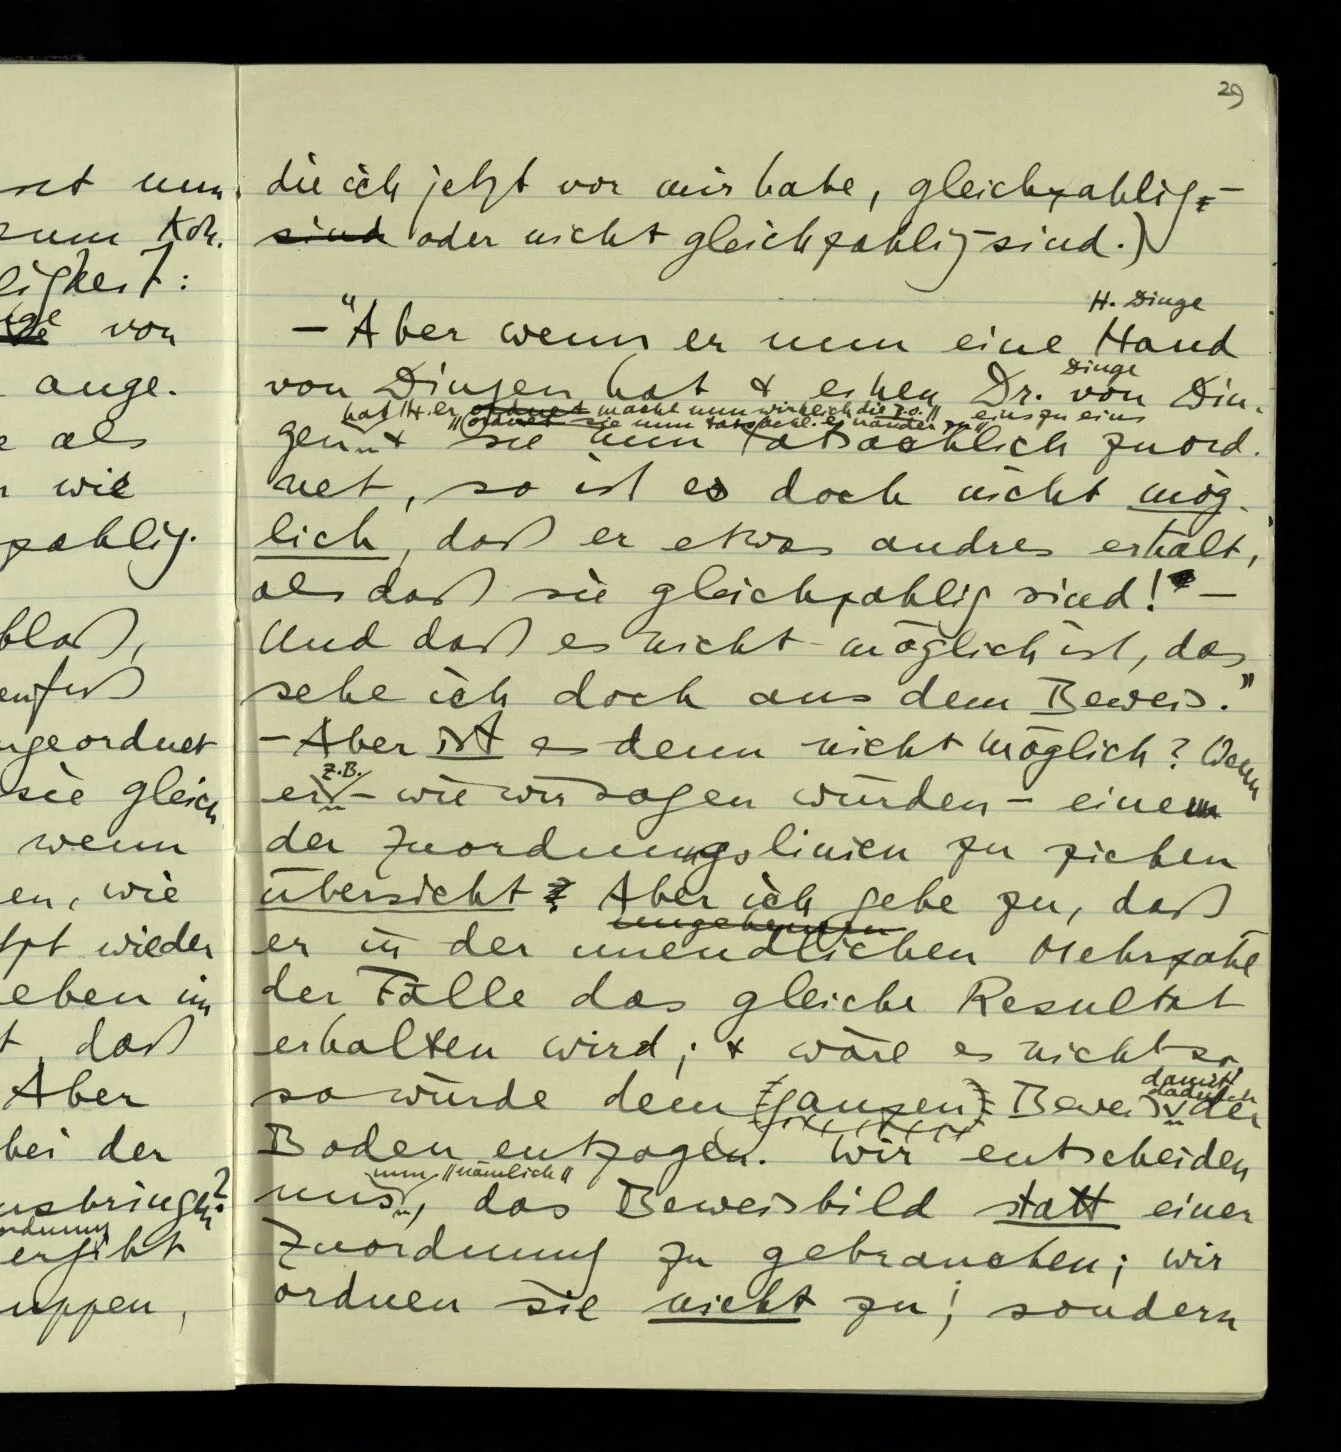 29
set nun
zum Koh.
ligkeit:
von
ange.
als
wie
zahlig.
blaß,
enfuß
ngeordnet
sie gleich
wenn
en, wie
tzt wieder
eben im
t, daß
Aber
bei der
usbringen?
ordnung
ergibt
uppen,
die ich jetzt vor mir habe, gleichzahlig,–
sind oder nicht gleichzahlig sind.)
H. Dinge
–"Aber wenn er nun eine Hand
Dinge
von Dingen hat & einen Dr. von Din-
hat H. er ordnet macht nun wirklich die Z.O. eins zu eins
ordnet sie nun tatsächl. einander zu
gen & sie nun tatsächlich zuord-
net, so ist es doch nicht mög-
lich, daß er etwas andres erhält,
als daß sie gleichzahlig sind! –
Und daß es nicht möglich ist, das
sehe ich doch aus dem Beweis."
– Aber ist es denn nicht möglich? Wenn
z.B.
er – wie wir sagen würden – eine
der Zuordnungslinien zu ziehen
übersieht? Aber ich gebe zu, daß
ungeheuren
er in der unendlichen Mehrzahl
der Fälle das gleiche Resultat
erhalten wird; & wäre es nicht so,
damit
dadurch
so würde dem (ganzen) Beweis der
Boden entzogen. Wir entscheiden
nun "nämlich"
uns, das Beweisbild statt einer
Zuordnung zu gebrauchen; wir
ordnen sie nicht zu; sondern